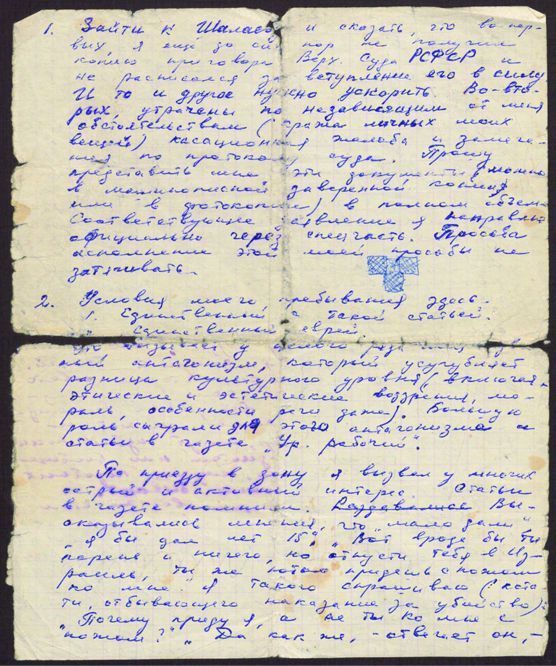 1. Зайти к Шаласо и сказать, что во-пер-
вых, я ещё до сих пор не получил
копию приговора Верх. Суда РСФСР и
не расписался за вступление его в силу
И то и другое нужно ускорить. Во-вто-
рых, утрачены по независящим от меня
обстоятельствам (кража личных моих
вещей) кассационная жалоба и замеча-
ния по протоколу суда. Прошу
представить мне эти документы (можно
в машинописной заверенной копии,
или в фотокопии) в полном объёме
Соответствующее заявление я направлю
официально через спецчасть. Просьба
исполнение этой моей просьбы не
затягивать.
2. Условия моего пребывания здесь.
1. Единственный с такой статьёй.
Единственный еврей.
Это вызывает у
ный антагонизм, который усугубляет
разница культурного уровня (включая
этические и эстетические воззрения, мо-
раль, особенности речи даже). Большую
роль сыграли для этого антагонизма и
статьи в газете "Ур. рабочий".
По приезду в зону я вызвал у многих
острый и активный интерес. Статьи
в газете помнили. Раздавались Вы-
сказывались мнения, что "мало дали"
"я бы дал лет 15". "Вот вроде бы ты
парень и ничего, но отпусти тебя в Из-
раиль, ты же потом придёшь с ножом
ко мне". Я такого спрашиваю (кста-
ти, отбывающего наказание за убийство):
"Почему приду я, а не ты ко мне с
ножом?" "Да как же, - отвечает он, -